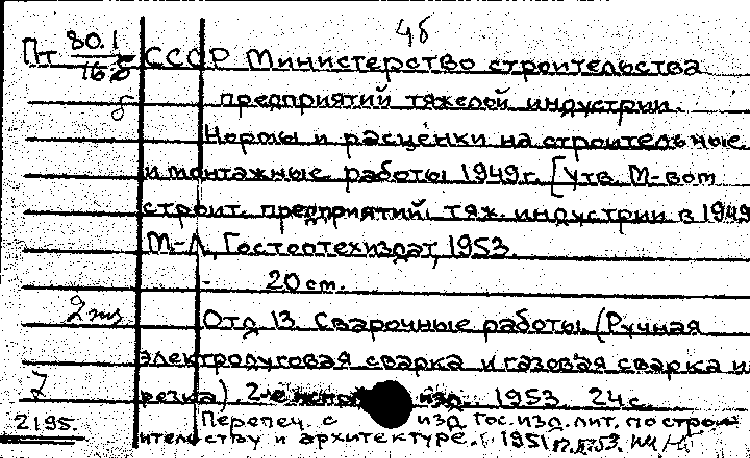 4б
Пт 80.1 СССР Министерство строительства
165 предприятий тяжелой индустрии.
б Нормы и расценки на строительные
и монтажные работы 1949г. [Утв. М-вом
строит. предприятий тяж. индустрии в 1949
М-Л, Гостоптехиздат, 1953.
20 см.
2 экз Отд 13. Сварочные работы. (Ручная
электродуговая сварка и газовая сварка и
7 резка). 2-е изд. 1953 24 с.
2195. Перепеч. с изд Гос. изд. лит. по строи-
тельству и архитектуре. 1951